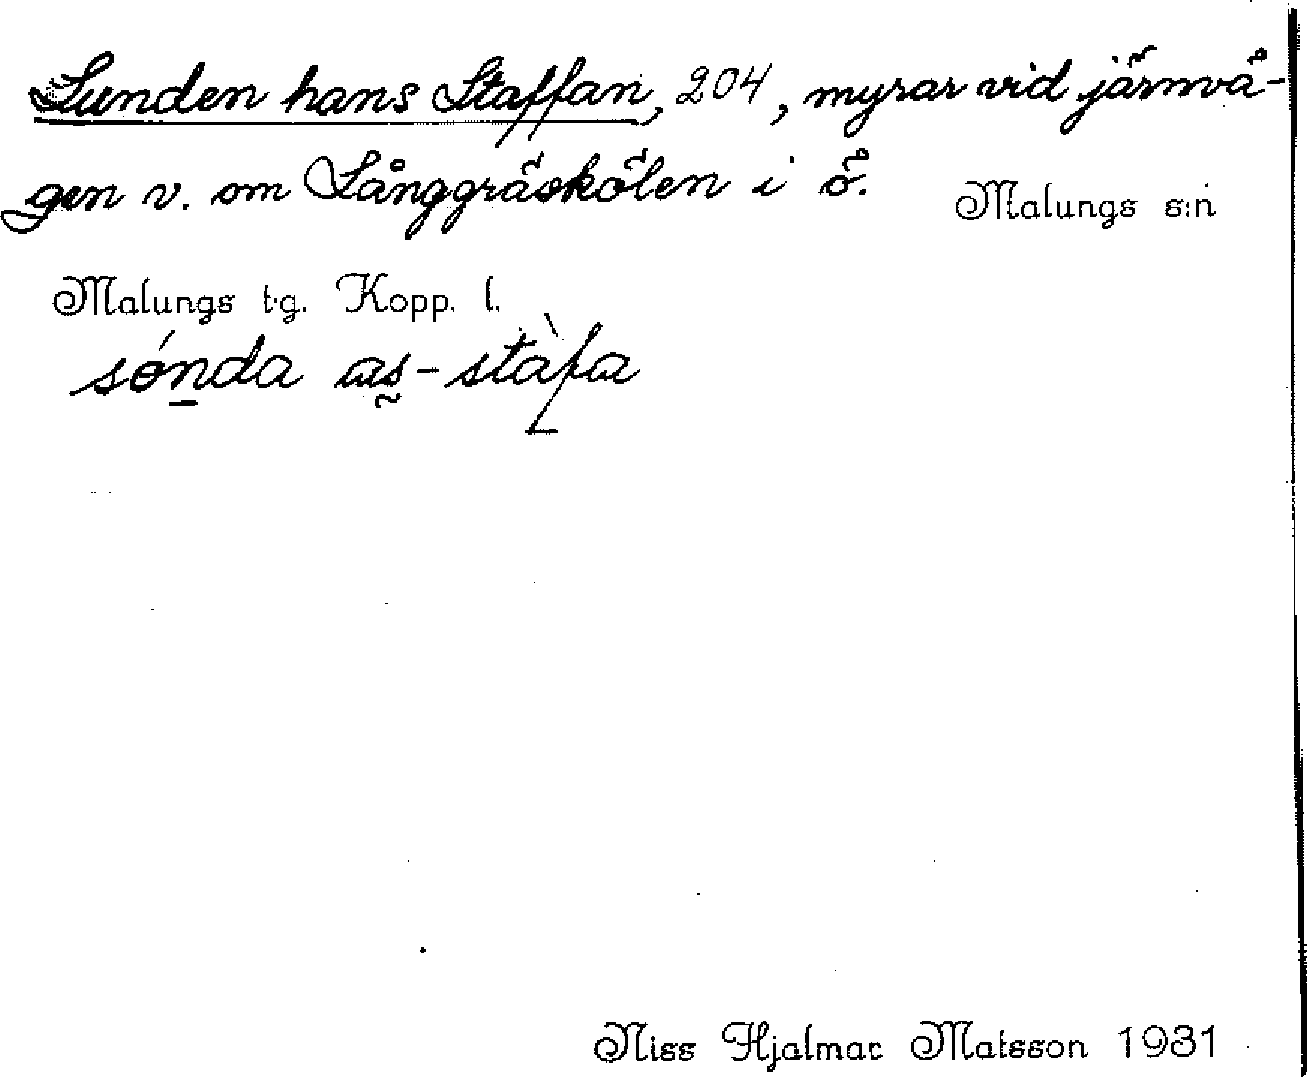 Sunden hans Staffan, 204, myrar vid järnvä-
gen v. om Långgräskölen i ö. Malungs s:n
Malungs t.g. Kopp. l.
sónda as-stàfa
Niss Hjalmar Matsson 1931